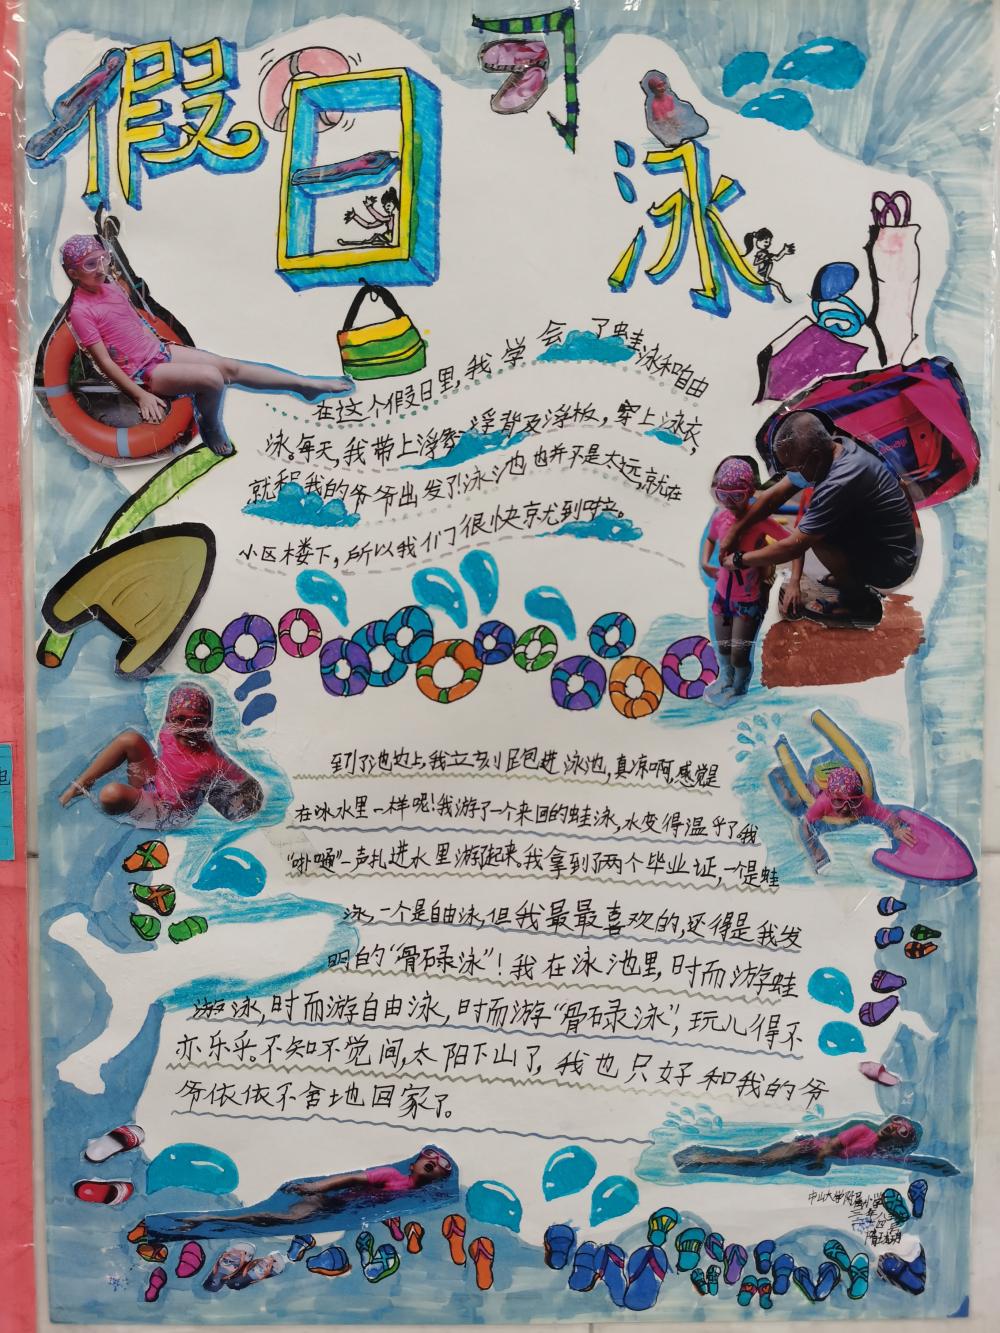 假日习泳
在这个假日里,我学会了蛙泳和自由
泳。每天,我带上浮漂浮背及浮板,穿上泳衣,
就和我的爷爷出发了!泳池也并不是太远,就在
小区楼下,所以我们很快就到啦。
到了池边上,我立刻跑进泳池,真凉啊,感觉是
在冰水里一样呢!我游了一个来回的蛙泳,水变得温乎了。我
“啪嗵”一声扎进水里游起来。我拿到了两个毕业证,一个是蛙
泳,一个是自由泳,但我最最喜欢的,还得是我发
明的“骨碌泳”!我在泳池里,时而游蛙
游泳,时而游自由泳,时而游“骨碌泳”,玩儿得不
亦乐乎。不知不觉间,太阳下山了,我也只好和我的爷
爷依依不舍地回家了。
中山大学附属小学